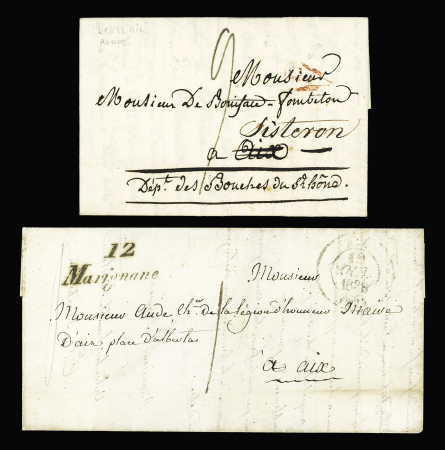 9
Monsieur
Monsieur De Boniface-Fombeton
Sisteron
a Aix
Dépt. des Bouches du Rhône.
12
Marignane
Monsieur
1
Monsieur Aude Chr. de la légion d'honneur Maire
D'aix place d'albertas
a aix